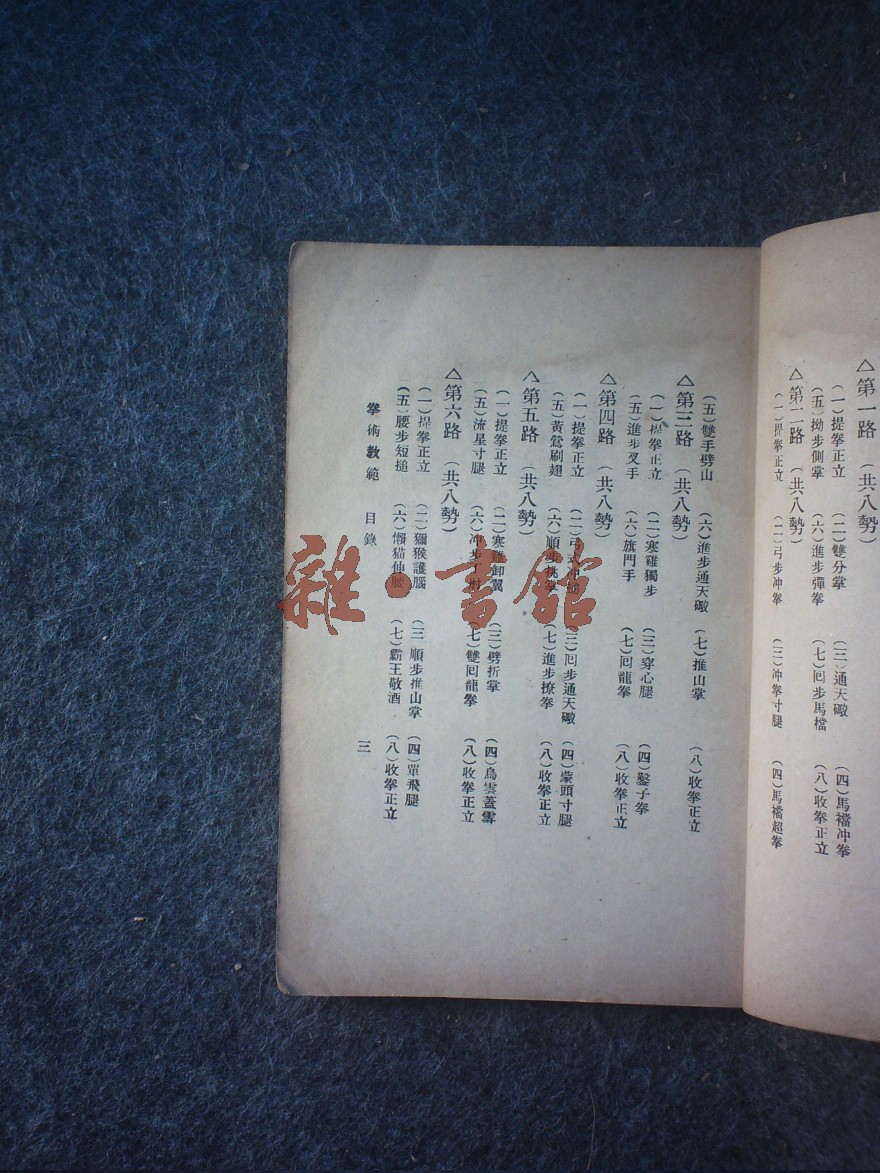 △第一路（共八勢）
（一）提拳正立　（二）雙分掌　（三）通天礮　（四）馬襠冲拳
（五）拗步側掌　（六）進步彈拳　（七）回步馬檔　（八）收拳正立
△第二路（共八勢）
（一）提拳正立　（二）弓步冲拳　（三）冲拳寸腿　（四）馬襠超拳
（五）雙手劈山　（六）進步通天礮　（七）推山掌　（八）收拳正立
△第三路（共八勢）
（一）提拳正立　（二）寒雞獨步　（三）穿心腿　（四）鑿子拳
（五）進步叉手　（六）旗門手　（七）回龍拳　（八）收拳正立
△第四路（共八勢）
（一）提拳正立　（二）弓　（三）回步通天礮　（四）蒙頭寸腿
（五）黃鶯刷翅　（六）順步挑掌　（七）進步撩拳　（八）收拳正立
△第五路（共八勢）
（一）提拳正立　（二）寒雞卸翼　（三）劈折掌　（四）烏雲蓋雪
（五）流星寸腿　（六）冲步　（七）雙回龍拳　（八）收拳正立
△第六路（共八勢）
（一）提拳正立　（二）獼猴護腦　（三）順步推山掌　（四）單飛腿
（五）腰步短搥　（六）懶猫伸腰　（七）霸王敬酒　（八）收拳正立
拳術教範　目錄　三
雜·書館